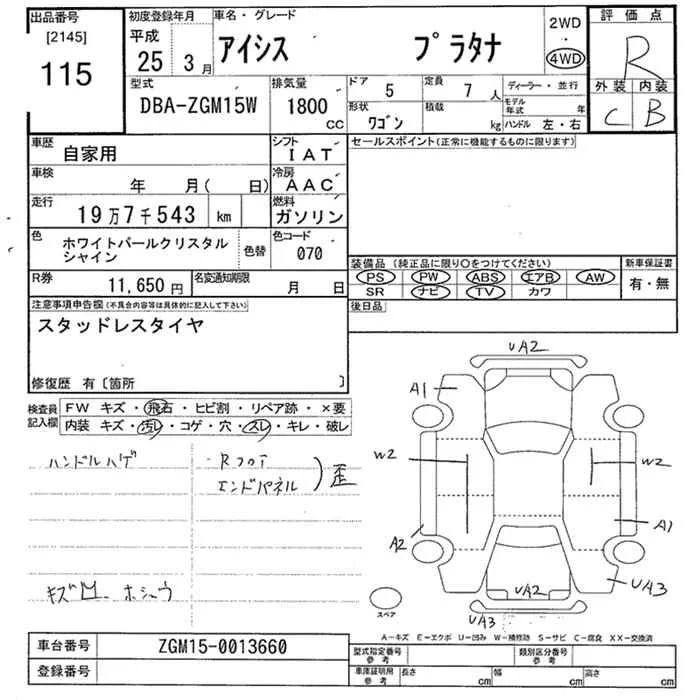 出品番号
[2145]
115
初度登録年月
平成
25 3月
車名・グレード
アイシス プラタナ
2WD
4WD
評価点
R
外装 内装
C B
型式
DBA-ZGM15W
排気量
1800
CC
ドア 5
定員 7人
形状 ワゴン
積載 kg
ディーラー・並行
モデル年式 年
ハンドル 左・右
車歴 自家用
シフト IAT
車検 年 月( 日)
冷房 AAC
走行 19万7千543 km
燃料 ガソリン
色 ホワイトパールクリスタルシャイン
色替
色コード 070
R券 11,650円
名変通知期限 月 日
セールスポイント(正常に機能するものに限ります)
装備品(純正品に限り○をつけてください)
PS PW ABS エアB AW
SR ナビ TV カワ
新車保証書
有・無
後日品
注意事項申告欄(不具合内容等は具体的に記入して下さい)
スタッドレスタイヤ
修復歴 有〔箇所 〕
検査員記入欄
FW キズ・飛石・ヒビ割・リペア跡・×要
内装 キズ・汚レ・コゲ・穴・スレ・キレ・破レ
ハンドルハゲ
Rフロア
エンドパネル
)歪
キズ凹 ホシュウ
UA2
A1
W2
W2
A2
A1
UA2
UA3
UA3
スペア
A-キズ E-エクボ U-凹み W-補修跡 S-サビ C-腐食 XX-交換済
車台番号 ZGM15-0013660
登録番号
型式指定番号 参考
類別区分番号 参考
車庫証明用 参考
長さ cm
幅 cm
高さ cm